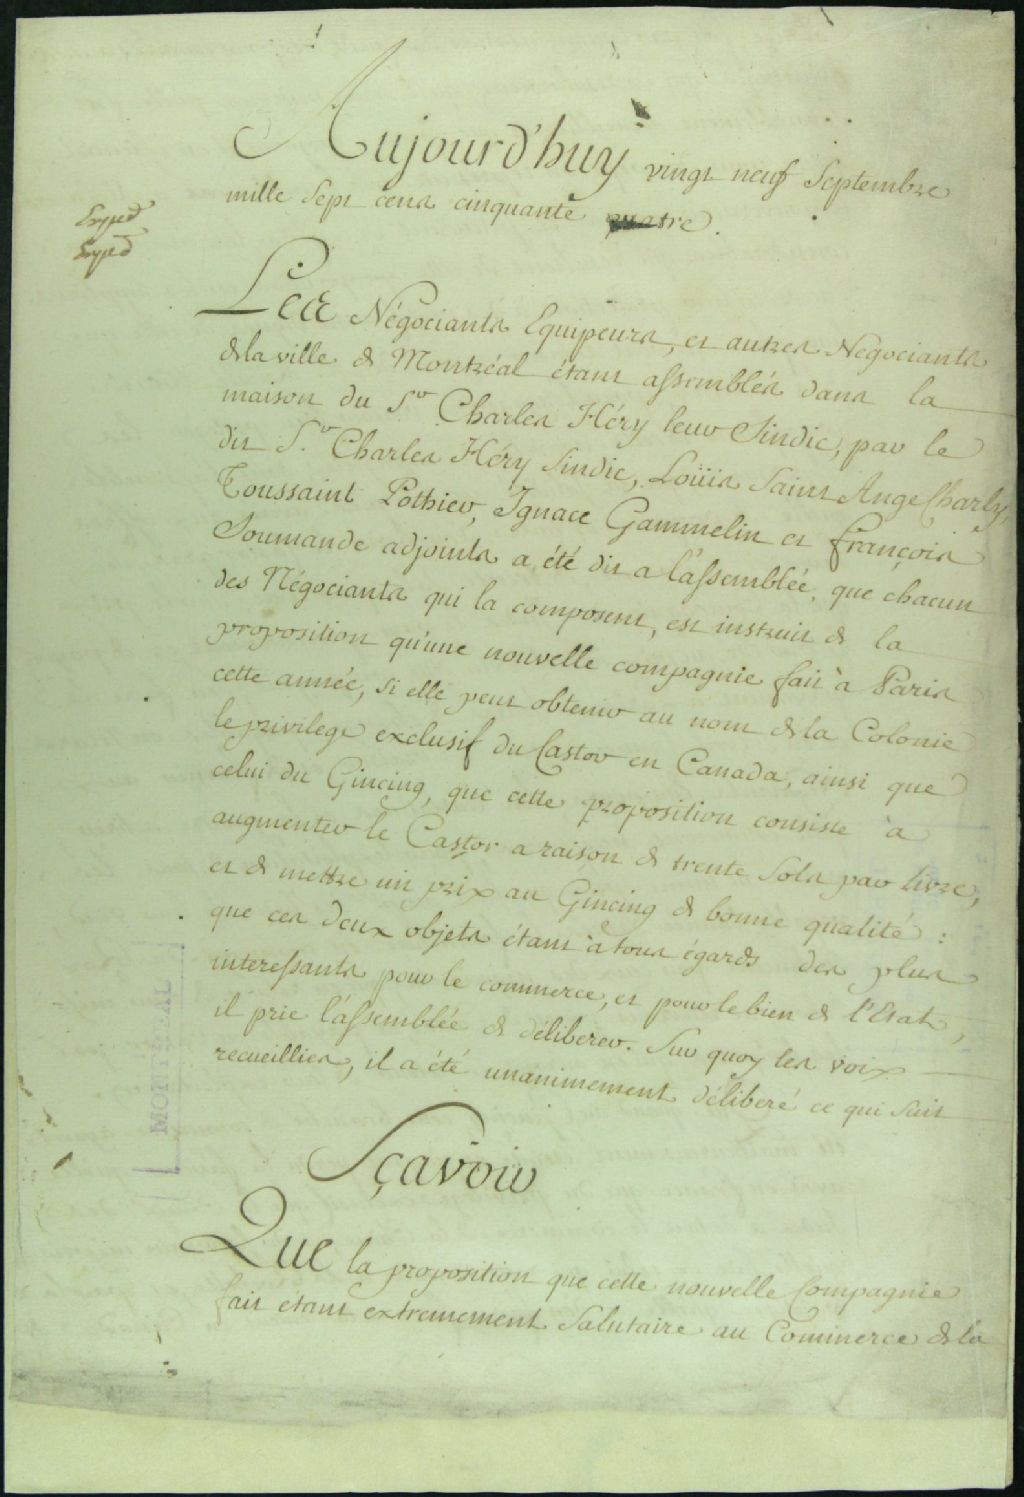 Aujourd'huy vingt neuf Septembre
mille Sept cens cinquante quatre.
Expéd
Expéd
Les Négocians Equipeurs, et autres Negocians
de la ville de Montréal étant assemblés dans la
maison du Sr Charles Héry leur Sindic, par le
dit Sr. Charles Héry Sindic, Loüis Saint Ange Charly,
Toussaint Pothier, Ignace Gammelin et françois
Soumande adjoints a été dit a l'assemblée, que chacun
des Négociants qui la composent, est instruit de la
proposition qu'une nouvelle compagnie fait à Paris
cette année, si elle peut obtenir au nom de la Colonie
le privilege exclusif du Castor en Canada, ainsi que
celui du Gincing, que cette proposition consiste à
augmenter le Castor a raison de trente Sols par livre,
et de mettre un prix au Gincing de bonne qualité :
que ces deux objets étant à tous égards des plus
interessants pour le commerce, et pour le bien de l'Etat,
il prie l'assemblée de déliberer. Sur quoy les voix
recueillies, il a été unanimement déliberé ce qui suit
Sçavoir
Que la proposition que cette nouvelle Compagnie
fait etant extremement Salutaire au Commerce de la
MONTREAL